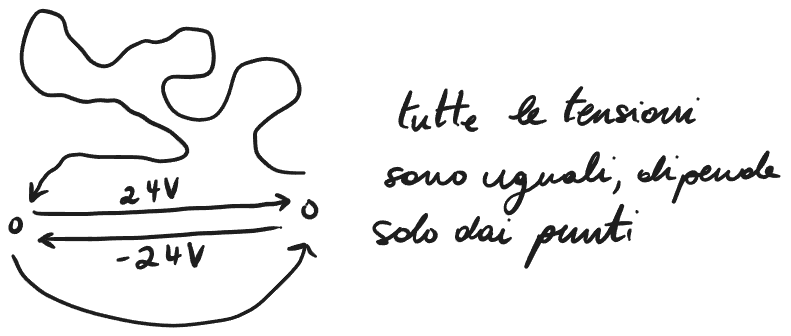 24V
-24V
tutte le tensioni
sono uguali, dipende
solo dai punti